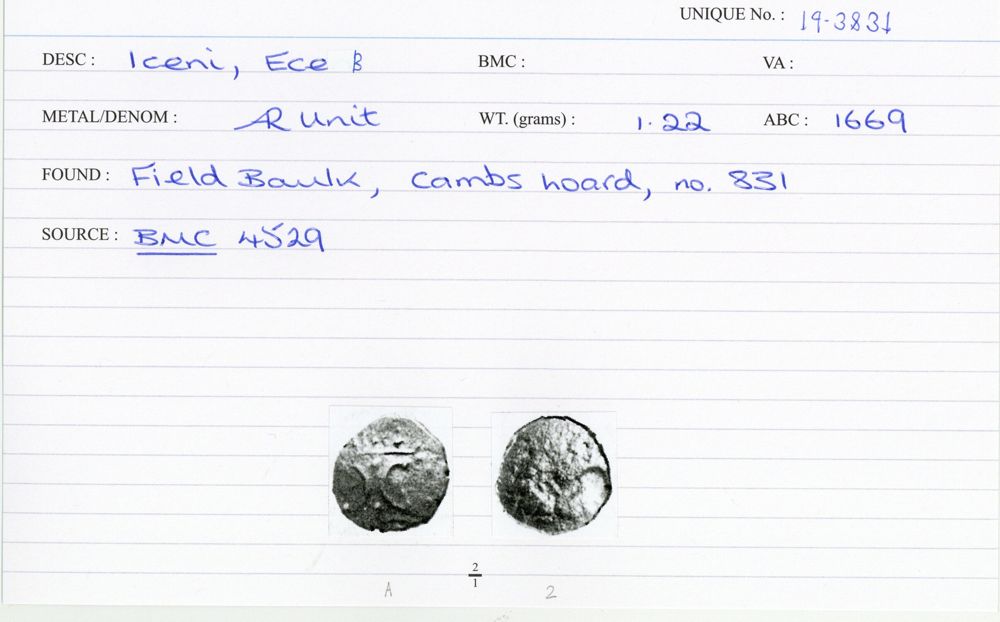 UNIQUE No. : 19-3831
DESC : Iceni, Ece B BMC : VA :
METAL/DENOM : AR Unit WT. (grams) : 1.22 ABC : 1669
FOUND : Field Baulk, Cambs hoard, no. 831
SOURCE : BMC 4529
2
1
A 2